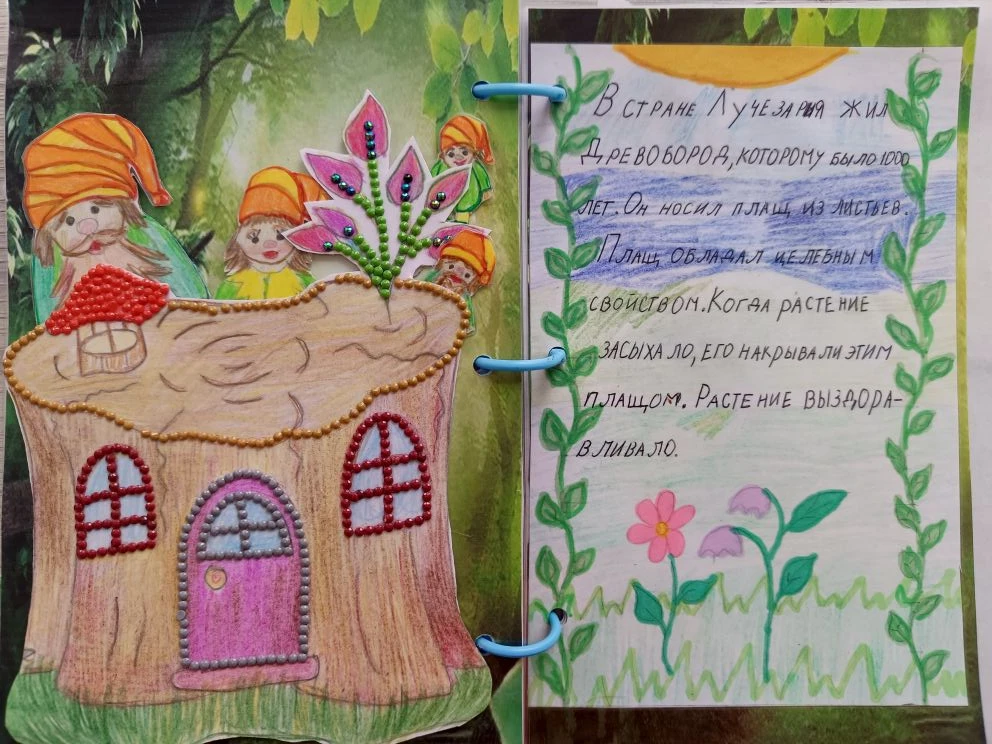 В стране Лучезария жил
Древобород, которому было 1000
лет. Он носил плащ из листьев.
Плащ обладал целебным
свойством. Когда растение
засыхало, его накрывали этим
плащом. Растение выздора-
вливало.